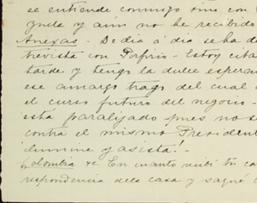 se entiende conmigo sino con
y aun no he recibido
Anexas - De dia á dia se ha d
trevista con Porfirio - Estoy cita
tarde y tengo la dulce espera
ese amargo trago del cual
el curso futuro del negocio -
está paralizado pues no s
contra el mismo President
ilumine y asista! -
Colombia &c En cuanto recibí tu co
rrespondencia de la casa y saqué c